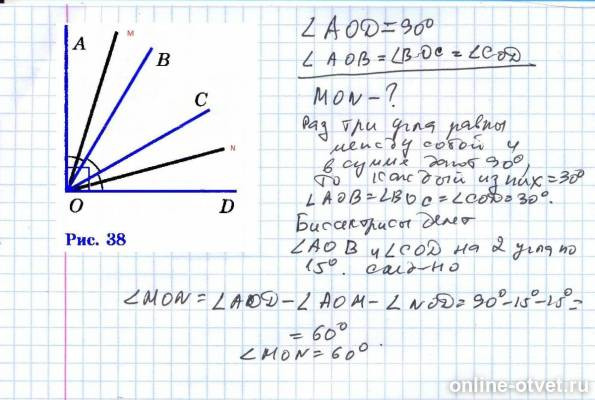 A
M
B
C
N
O
D
Рис. 38
∠AOD=90°
∠AOB=∠BOC=∠COD
MON-?
Раз три угла равны
между собой и
в сумме дают 90°,
то каждый из них=30°
∠AOB=∠BOC=∠COD=30°.
Биссектрисы делят
∠AOB и ∠COD на 2 угла по
15°. След-но
∠MON=∠AOD-∠AOM-∠NOD=90°-15°-15°=
=60°
∠MON=60°.
online-otvet.ru